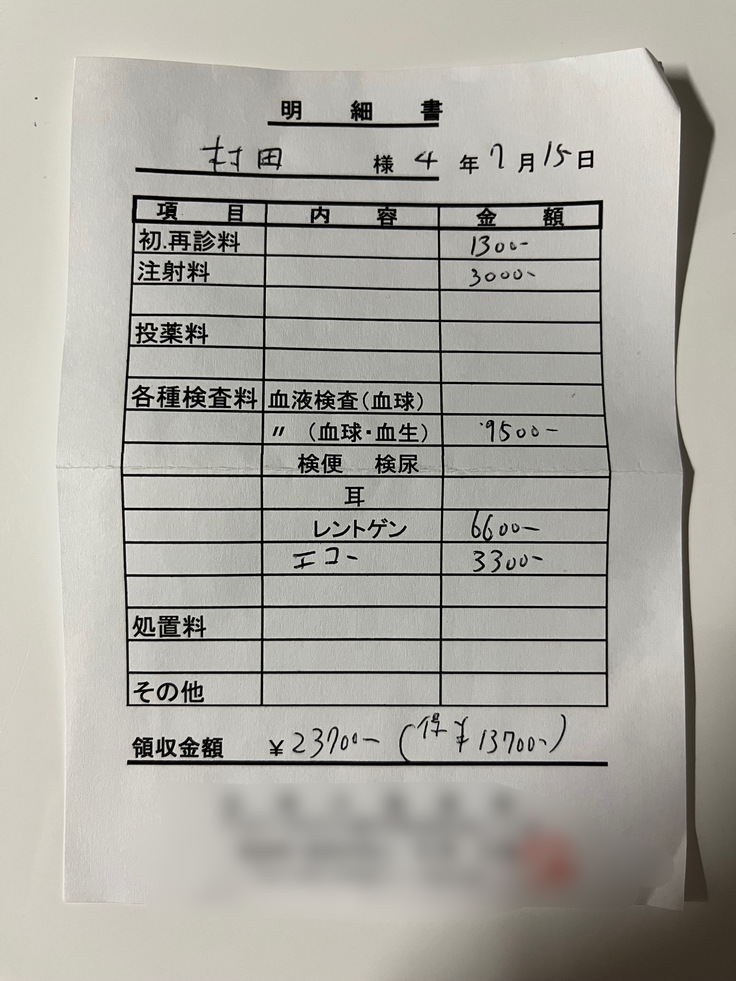 明 細 書
村田 様 4 年 7 月 15 日
項 目 内 容 金 額
初.再診料 1300-
注射料 3000-
投薬料
各種検査料 血液検査(血球)
〃 (血球・血生) 9500-
検便 検尿
耳
レントゲン 6600-
エコー 3300-
処置料
その他
領収金額 ¥23700- ( ¥13700-)